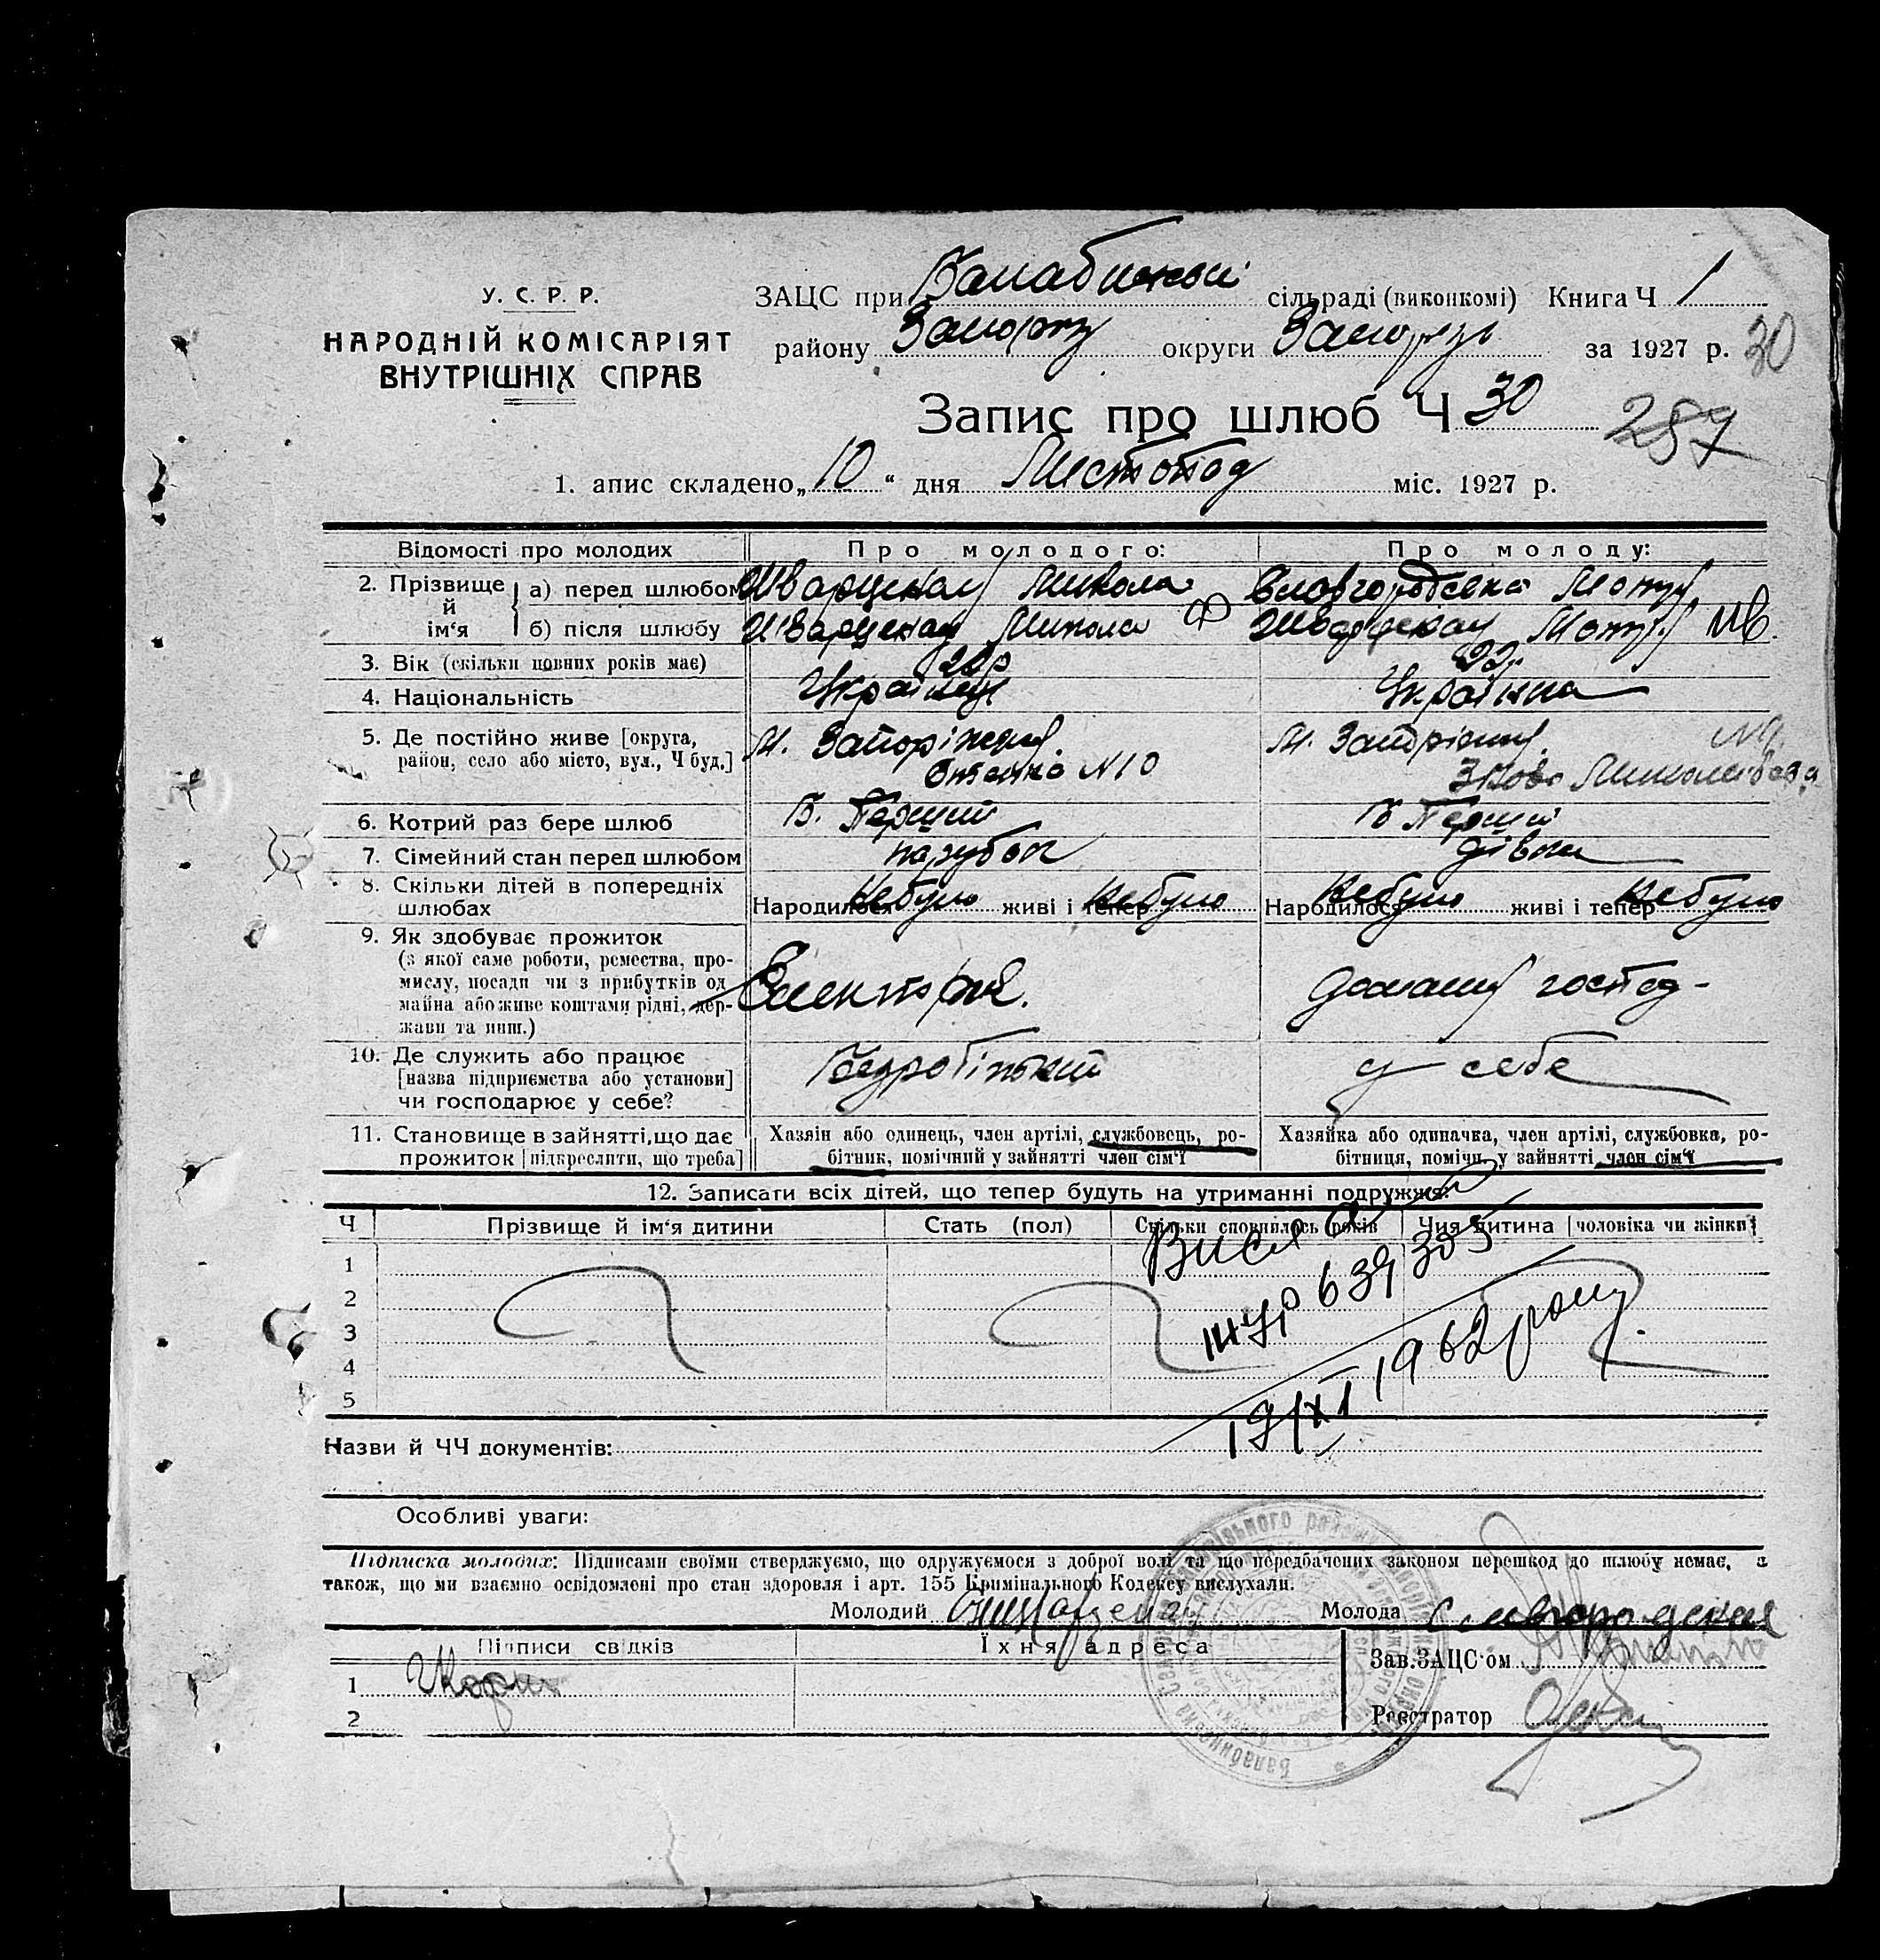 У. С. Р. Р.
НАРОДНІЙ КОМІСАРІЯТ
ВНУТРІШНІХ СПРАВ
ЗАЦС при Балабинській сільраді (виконкомі) Книга Ч 1
району Запоріз округи Запоріз за 1927 р. 30
Запис про шлюб Ч 30
287
1. апис складено „10“ дня Листопад міс. 1927 р.
Відомості про молодих Про молодого: Про молоду:
2. Прізвище й ім‘я
а) перед шлюбом Микола
б) після шлюбу Микола
3. Вік (скільки повних років має) 22р
4. Національність Українець Українка
5. Де постійно живе [округа, район, село або місто, вул., Ч буд.]
М. Запоріжжя. N10
М. Запоріжжя.
6. Котрий раз бере шлюб В. Перший В Перший
7. Сімейний стан перед шлюбом парубок дівка
8. Скільки дітей в попередніх шлюбах
Народилося небуло живі і тепер небуло Народилося небуло живі і тепер небуло
9. Як здобуває прожиток
(з якої саме роботи, ремества, про-
мислу, посади чи з прибутків од
майна або живе коштами рідні, дер-
жави та инш.)
домашнє господ-
10. Де служить або працює
[назва підприємства або установи]
чи господарює у себе?
Безробітний у себе
11. Становище в зайнятті, що дає
прожиток [підкреслити, що треба]
Хазяїн або одинець, член артілі, службовець, ро-
бітник, помічний у зайнятті член сім‘ї
Хазяйка або одиначка, член артілі, службовка, ро-
бітниця, помічн. у зайнятті член сім‘ї
12. Записати всіх дітей, що тепер будуть на утриманні подружжя:
Ч Прізвище й ім‘я дитини Стать (пол) Скільки сповнилось років Чия дитина [чоловіка чи жінки]
1
2
3
4
5
639305
17/XI 1962 року.
Назви й ЧЧ документів:
Особливі уваги:
Підписка молодих: Підписами своїми стверджуємо, що одружуємося з доброї волі та що передбачених законом перешкод до шлюбу немає, а
також, що ми взаємно освідомлені про стан здоровля і арт. 155 Кримінального Кодексу вислухали.
Молодий Молода Славгородская
Підписи свідків Їхня адреса
Зав. ЗАЦС‘ом
1
2
Реєстратор